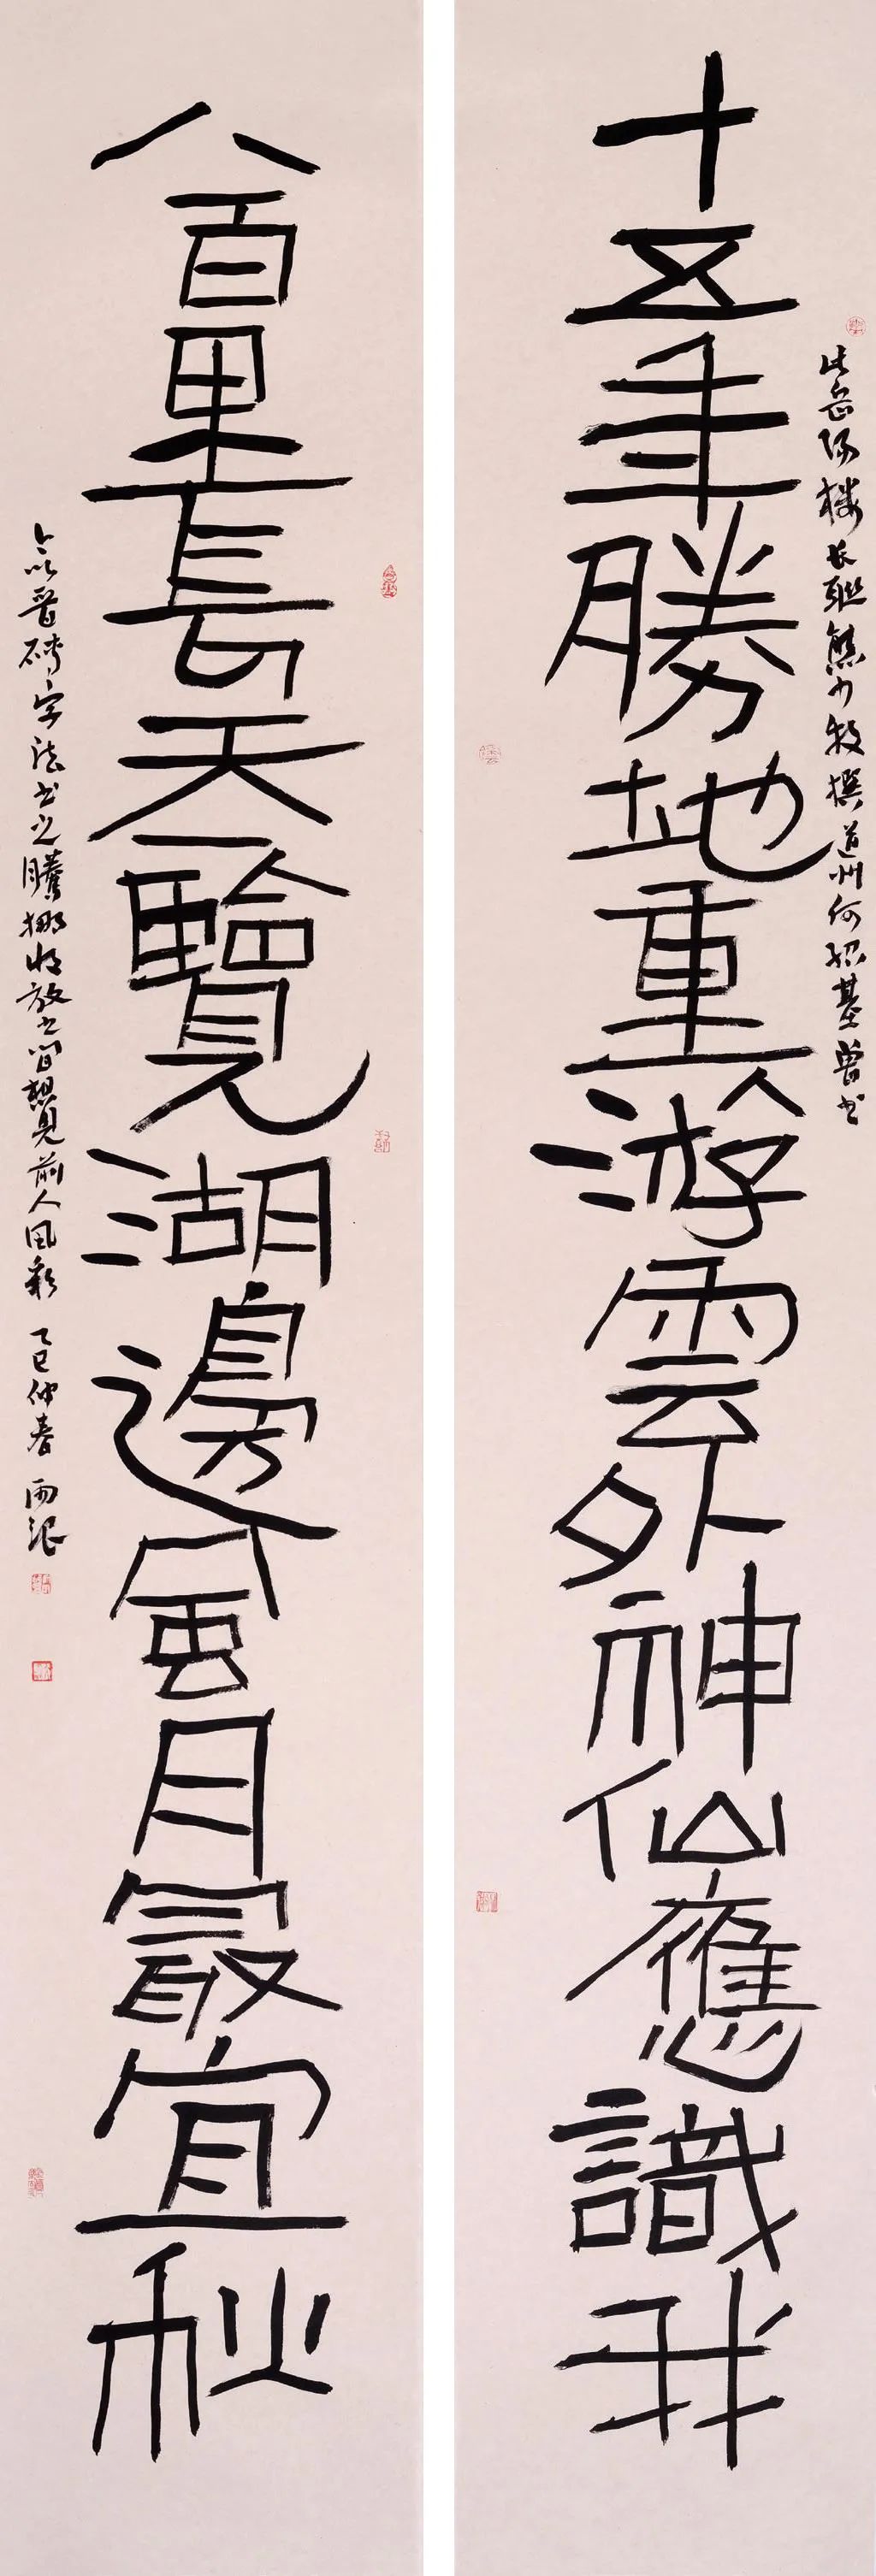 此岳陽樓長聯熊少牧撰道州何紹基曾書
十五年勝地重游雲外神仙應識我
八百里長天一覽湖邊風月最宜秋
今以晉磚字法書之騰挪收放之間想見前人風彩 乙巳仲春 雨浪